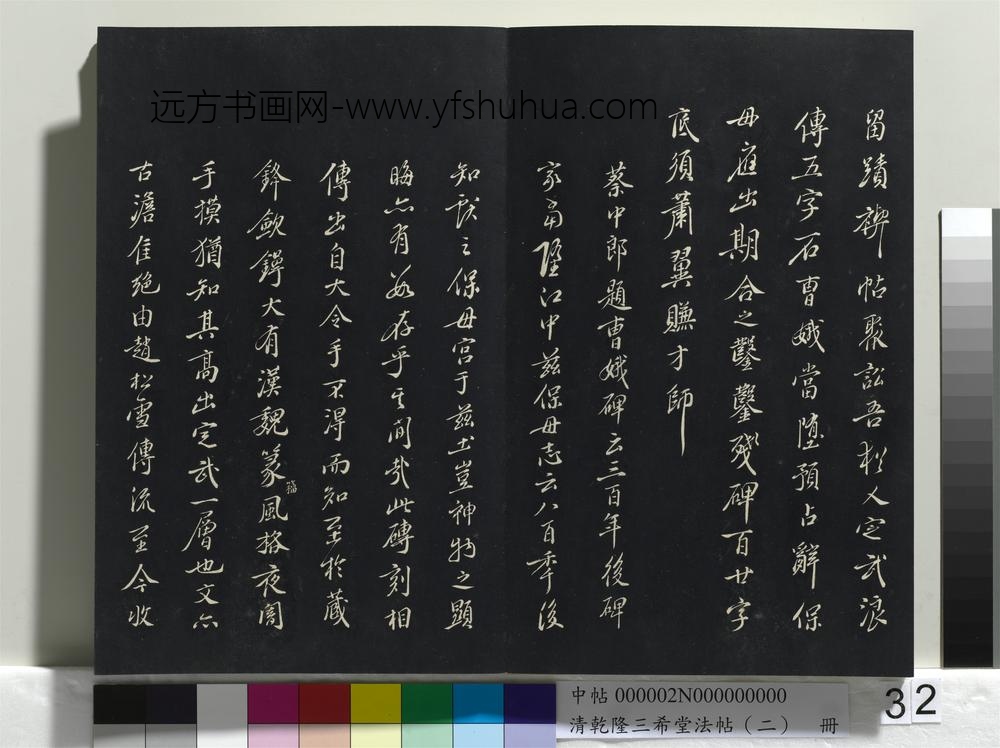 留蹟禊帖聚訟吾於人定武浪
傳五字石曹娥當墮預占辭保
母應出期合之鑿鑿殘碑百廿字
底須蕭翼賺才師
蔡中郎題曹娥碑云三百年後碑
家當墮江中茲保母志云八百年後
知獻之保母宮于茲土豈神物之顯
晦亦有數存乎其間哉此磚刻相
傳出自大令手不得而知至於藏
鋒斂鍔大有漢魏篆風格夜闇
籀
手摸猶知其高出定武一層也文亦
古澹隹絕由趙松雪傳流至今收
远方书画网-www.yfshuhua.com
中帖 000002N000000000
清乾隆三希堂法帖（二） 冊
32